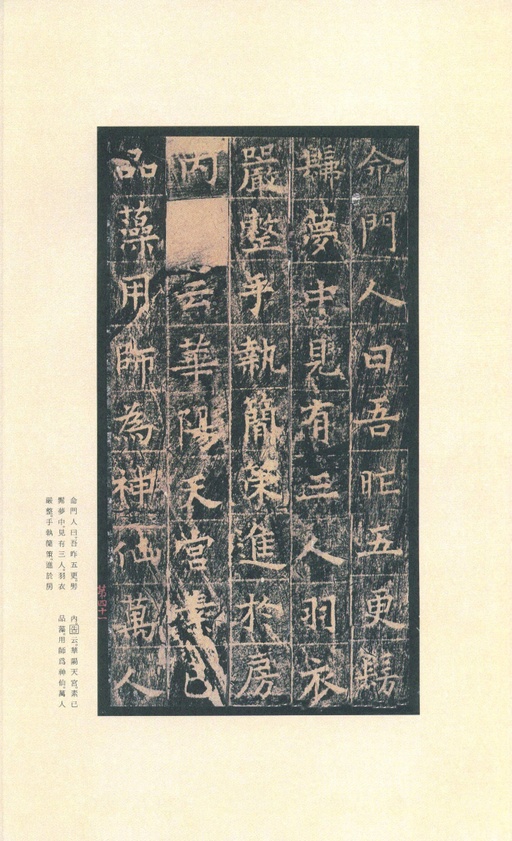 命門人曰吾昨五更髣
髴夢中見有三人羽衣
嚴整手執簡策進於房
丙云華陽天宮素已
品藻用師為神仙萬人
第四十
命門人曰吾昨五更髣
髴夢中見有三人羽衣
嚴整手執簡策進於房
內云華陽天宮素已
品藻用師爲神仙萬人